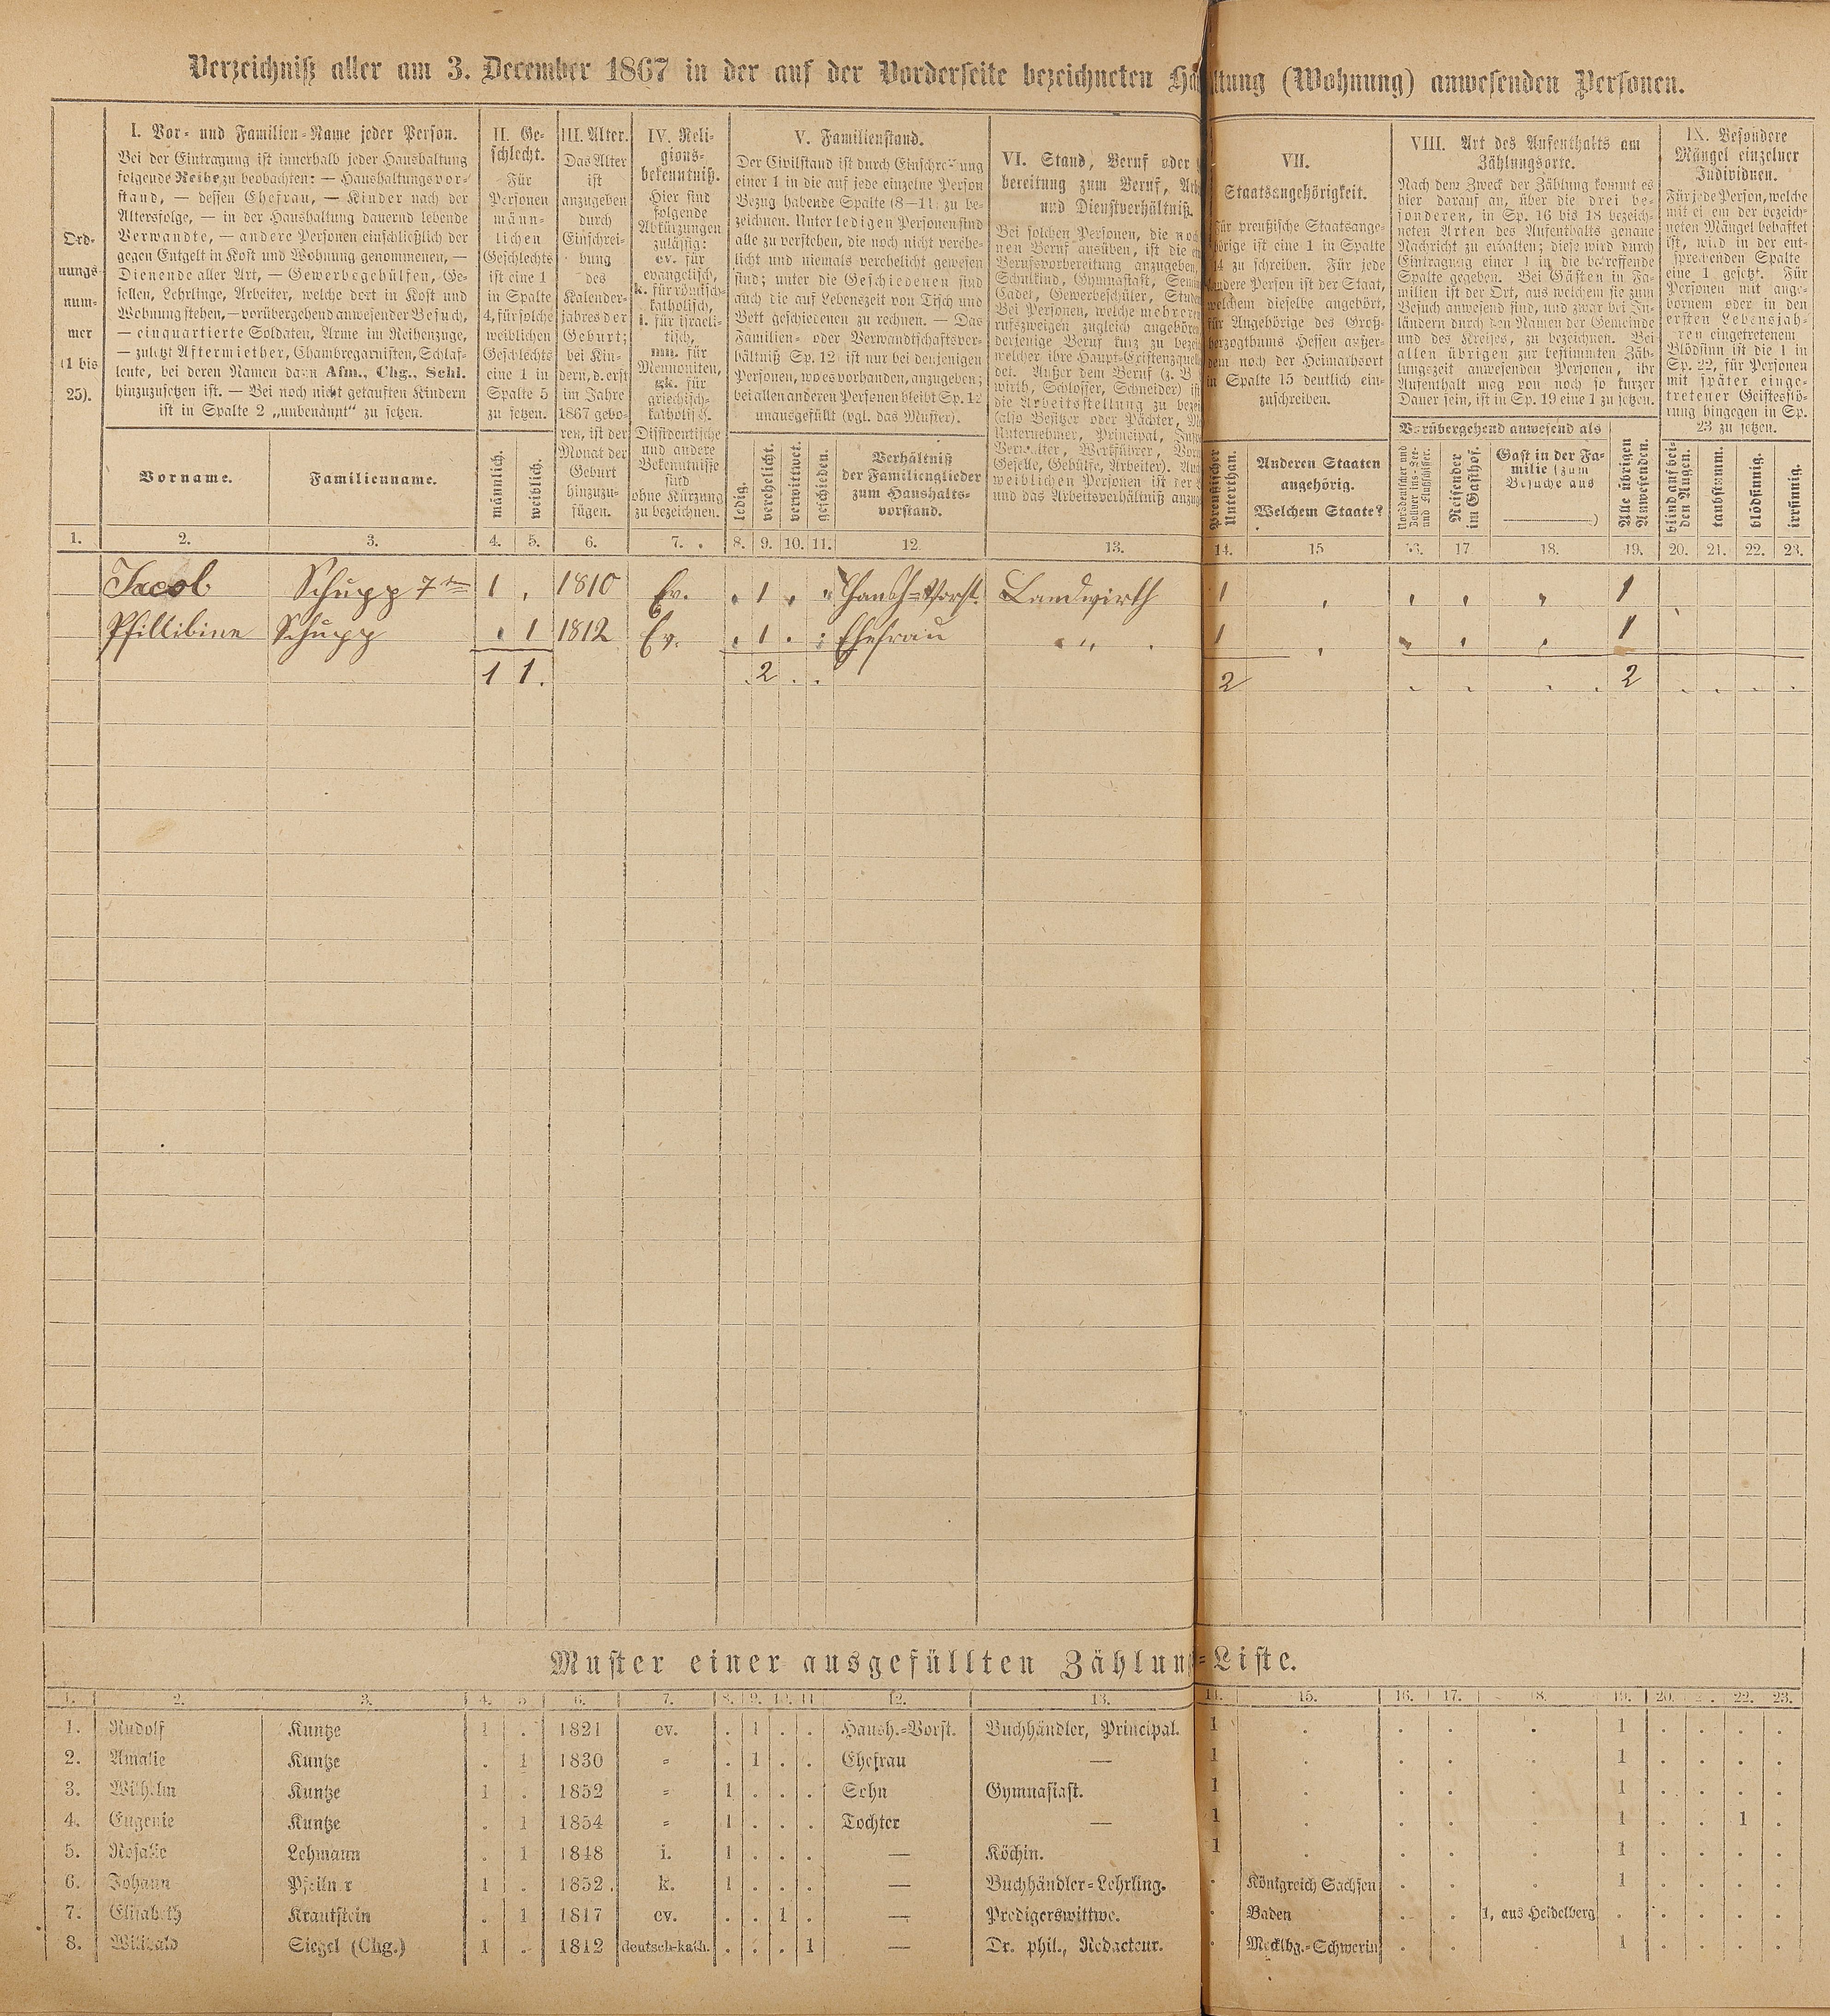 Verzeichniß aller am 3. December 1867 in der auf der Vorderseite bezeichneten Ha ltung (Wohnung) anwesenden Personen.
Ord-
nungs-
num-
mer
(1 bis
25).
I. Vor- und Familien-Name jeder Person.
Bei der Eintragung ist innerhalb jeder Haushaltung
folgende Reihe zu beobachten: — Haushaltungsvor-
stand, — dessen Ehefrau, — Kinder nach der
Altersfolge, — in der Haushaltung dauernd lebende
Verwandte, — andere Personen einschließlich der
gegen Entgelt in Kost und Wohnung genommenen, —
Dienende aller Art, — Gewerbegehülfen, Ge-
sellen, Lehrlinge, Arbeiter, welche dort in Kost und
Wohnung stehen, — vorübergehend anwesender Besuch,
— einquartierte Soldaten, Arme im Reihenzuge,
— zuletzt Aftermiether, Chambregarnisten, Schlaf-
leute, bei deren Namen dann Afm., Chg., Schl.
hinzuzusetzen ist. — Bei noch nicht getauften Kindern
ist in Spalte 2 „unbenannt“ zu setzen.
Vorname.
Familienname.
II. Ge-
schlecht.
Für
Personen
männ-
lichen
Geschlechts
ist eine 1
in Spalte
4, für solche
weiblichen
Geschlechts
eine 1 in
Spalte 5
zu setzen.
männlich.
weiblich.
III. Alter.
Das Alter
ist
anzugeben
durch
Einschrei-
bung
des
Kalender-
jahres der
Geburt;
bei Kin-
dern, d. erst
im Jahre
1867 gebo-
ren, ist der
Monat der
Geburt
hinzuzu-
fügen.
IV. Reli-
gions-
bekenntniß.
Hier sind
folgende
Abkürzungen
zulässig:
ev. für
evangelisch,
k. für römisch-
katholisch,
i. für israeli-
tisch,
mn. für
Mennoniten,
gk. für
griechisch-
katholisch.
Dissidentische
und andere
Bekenntnisse
sind
ohne Kürzung
zu bezeichnen.
V. Familienstand.
Der Civilstand ist durch Einschreibung
einer 1 in die auf jede einzelne Person
Bezug habende Spalte (8—11) zu be-
zeichnen. Unter ledigen Personen sind
alle zu verstehen, die noch nicht verehe-
licht und niemals verehelicht gewesen
sind; unter die Geschiedenen sind
auch die auf Lebenszeit von Tisch und
Bett geschiedenen zu rechnen. — Das
Familien- oder Verwandtschaftsver-
hältniß Sp. 12 ist nur bei denjenigen
Personen, wo es vorhanden, anzugeben;
bei allen anderen Personen bleibt Sp. 12
unausgefüllt (vgl. das Muster).
ledig.
verehelicht.
verwittwet.
geschieden.
Verhältniß
der Familienglieder
zum Haushalts-
vorstand.
VI. Stand, Beruf oder
bereitung zum Beruf, Arb
und Dienstverhältniß.
Bei solchen Personen, die noch
nen Beruf ausüben, ist die
Berufsvorbereitung anzugeben,
Schulkind, Gymnasiast, Semin
Cadet, Gewerbeschüler, Studen
Bei Personen, welche mehreren
rufszweigen zugleich angehören,
derjenige Beruf kurz zu bezei
welcher ihre Haupt-Existenzquelle
det. Außer dem Beruf (z. B.
wirth, Schlosser, Schneider) ist
die Arbeitsstellung zu bezei
(also Besitzer oder Pächter, Me
Unternehmer, Principal, Insp
Verwalter, Werkführer, Vor
Geselle, Gehülfe, Arbeiter). Auch
weiblichen Personen ist der
und das Arbeitsverhältniß anzug
VII.
Staatsangehörigkeit.
Für preußische Staatsange-
hörige ist eine 1 in Spalte
14 zu schreiben. Für jede
andere Person ist der Staat,
welchem dieselbe angehört,
für Angehörige des Groß-
herzogthums Hessen außer-
dem noch der Heimathsort
in Spalte 15 deutlich ein-
zuschreiben.
Preußischer
Unterthan.
Anderen Staaten
angehörig.
Welchem Staate?
VIII. Art des Aufenthalts am
Zählungsorte.
Nach dem Zweck der Zählung kommt es
hier darauf an, über die drei be-
sonderen, in Sp. 16 bis 18 bezeich-
neten Arten des Aufenthalts genaue
Nachricht zu erhalten; diese wird durch
Eintragung einer 1 in die betreffende
Spalte gegeben. Bei Gästen in Fa-
milien ist der Ort, aus welchem sie zum
Besuch anwesend sind, und zwar bei In-
ländern durch den Namen der Gemeinde
und des Kreises, zu bezeichnen. Bei
allen übrigen zur bestimmten Zäh-
lungszeit anwesenden Personen, ihr
Aufenthalt mag von noch so kurzer
Dauer sein, ist in Sp. 19 eine 1 zu setzen.
Vorübergehend anwesend als
Norddeutscher und
Zollvereins-See-
und Flußschiffer.
Reisender
im Gasthof.
Gast in der Fa-
milie (zum
Besuche aus
)
Alle übrigen
Anwesenden.
IX. Besondere
Mängel einzelner
Individuen.
Für jede Person, welche
mit einem der bezeich-
neten Mängel behaftet
ist, wird in der ent-
sprechenden Spalte
eine 1 gesetzt. Für
Personen mit ange-
bornem oder in den
ersten Lebensjah-
ren eingetretenem
Blödsinn ist die 1 in
Sp. 22, für Personen
mit später einge-
tretener Geistesstö-
rung hingegen in Sp.
23 zu setzen.
blind auf bei-
den Augen.
taubstumm.
blödsinnig.
irrsinnig.
1. 2. 3. 4. 5. 6. 7. 8. 9. 10. 11. 12. 13. 14. 15 16. 17 18. 19. 20. 21. 22. 23.
Jacob Schupp 7ter 1 . 1810 Ev. . 1 . . Haush=Vorst. Landwirth 1 . . . . 1
Phillibine Schupp . 1 1812 Ev. . 1 . . Ehefrau " 1 . . . . 1
1 1. . 2 . . 2 . . . . 2 . . . .
Muster einer ausgefüllten Zählungs-Liste.
1. 2. 3. 4. 5. 6. 7. 8. 9. 10. 11. 12. 13. 14. 15. 16. 17. 18. 19. 20. 21. 22. 23.
1. Rudolf Kuntze 1 . 1821 ev. . 1 . . Haush.-Vorst. Buchhändler, Principal. 1 . . . . 1 . . . .
2. Amalie Kuntze . 1 1830 = . 1 . . Ehefrau — 1 . . . . 1 . . . .
3. Wilhelm Kuntze 1 . 1852 = 1 . . . Sohn Gymnasiast. 1 . . . . 1 . . . .
4. Eugenie Kuntze . 1 1854 = 1 . . . Tochter — 1 . . . . 1 . . 1 .
5. Rosalie Lehmann . 1 1848 i. 1 . . . — Köchin. 1 . . . . 1 . . . .
6. Johann Pfeilner 1 . 1852. k. 1 . . . — Buchhändler-Lehrling. . Königreich Sachsen . . . 1 . . . .
7. Elisabeth Krautstein . 1 1817 ev. . . 1 . — Predigerswittwe. . Baden . . 1, aus Heidelberg . . . . .
8. Willibald Siegel (Chg.) 1 . 1812 deutsch-kath. . . . 1 — Dr. phil., Redacteur. . Mecklbg.-Schwerin . . . 1 . . . .